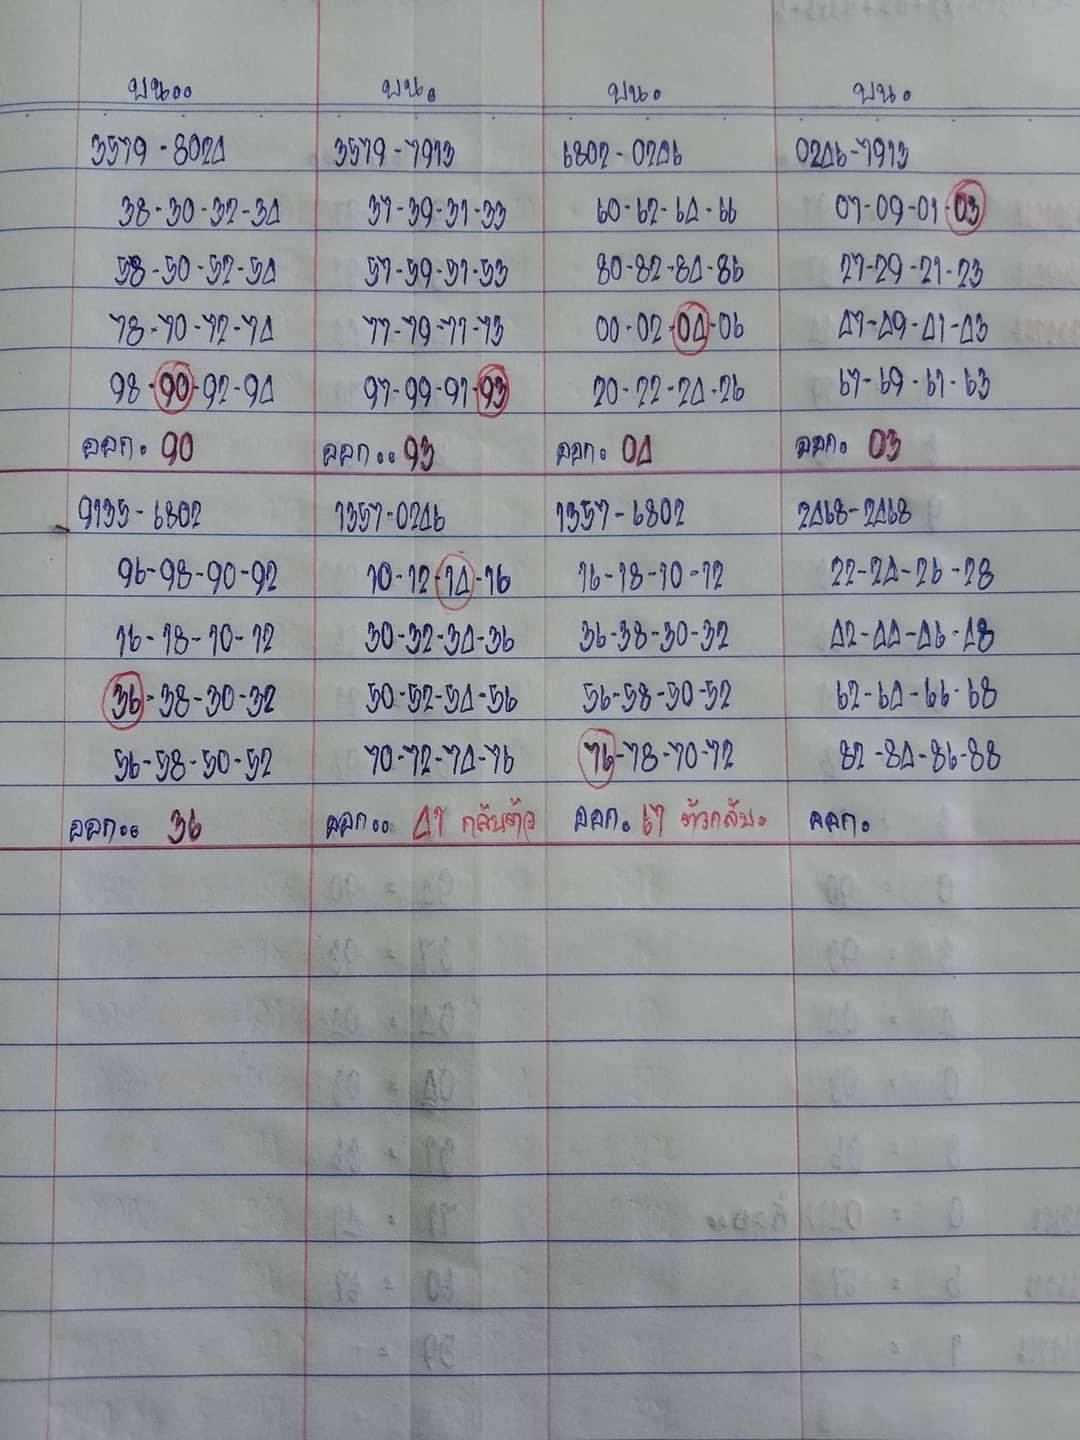 บน.. บน. บน. บน.
3579 - 8024 3579 - 7913 6802 - 0246 0246 - 7913
38-30-32-34 37-39-31-33 60-62-64-66 07-09-01-03
58-50-52-54 57-59-51-53 80-82-84-86 27-29-21-23
78-70-72-74 77-79-71-73 00-02-04-06 47-49-41-43
98-90-92-94 97-99-91-93 20-22-24-26 67-69-61-63
ออก. 90 ออก.. 93 ออก. 04 ออก. 03
9135 - 6802 1357-0246 1357 - 6802 2468-2468
96-98-90-92 10-12-14-16 16-18-10-12 22-24-26-28
16-18-10-12 30-32-34-36 36-38-30-32 42-44-46-48
36-38-30-32 50-52-54-56 56-58-50-52 62-64-66-68
56-58-50-52 70-72-74-76 76-78-70-72 82-84-86-88
ออก.. 36 ออก.. 41 กลับตัว ออก. 67 ตัวกลับ. ออก.